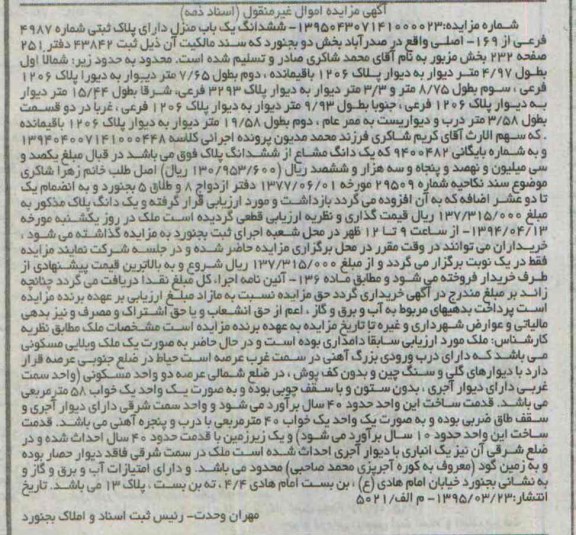 آگهی مزایده اموال غیرمنقول (اسناد ذمه)
شماره مزایده: 139504307141000023-ششدانگ یک باب منزل دارای پلاک ثبتی شماره 4987
فرعی از 169- اصلی واقع در صدرآباد بخش دو بجنورد که سند مالکیت آن ذیل ثبت 43842 دفتر 251
صفحه 232 بخش مزبور به نام آقای محمد شاکری صادر و تسلیم شده است. محدود به حدود زیر: شمالا اول
بطول 4/97 متر دیوار به دیوار پلاک 1206 باقیمانده ، دوم بطول 7/65 متر دیوار به دیورا پلاک 1206
فرعی ، سوم بطول 8/75 متر و 3/3 متر دیوار به دیوار پلاک 3293 فرعی، شرقا بطول 15/44 متر دیوار
به دیوار پلاک 1206 فرعی ، جنوبا بطول 9/93 متر دیوار به دیوار پلاک 1206 فرعی ، غربا در دو قسمت
بطول 3/58 متر درب و دیواریست به ممر عام ، دوم بطول 19/58 متر دیوار به دیوار پلاک 1206 باقیمانده
. که سهم الارث آقای کریم شاکری فرزند محمد مدیون پرونده اجرائی کلاسه 139404007141000448
و به شماره بایگانی 9400482 که یک دانگ مشاع از ششدانگ پلاک فوق می باشد در قبال مبلغ یکصد و
سی میلیون و نهصد و پنجاه و سه هزار و ششصد ریال (130/953/600 ریال) اصل طلب خانم زهرا شاکری
موضوع سند نکاحیه شماره 29509 مورخه 1377/06/01 دفتر ازدواج 8 و طلاق 5 بجنورد و به انضمام یک
تا دو عشر اضافه که به آن افزوده می گردد بازداشت و مورد ارزیابی قرار گرفته و یک دانگ پلاک مذکور به
مبلغ 137/315/000 ریال قیمت گذاری و نظریه ارزیابی قطعی گردیده است ملک در روز یکشنبه مورخه
1394/04/13- از ساعت 9 تا 12 ظهر در محل شعبه اجرای ثبت بجنورد به مزایده گذاشته می شود .
خریداران می توانند در وقت مقرر در محل برگزاری مزایده حاضر شده و در جلسه شرکت نمایند مزایده
فقط در یک نوبت برگزار می گردد و از مبلغ 137/315/000 ریال شروع و به بالاترین قیمت پیشنهادی از
طرف خریدار فروخته می شود و مطابق ماده 136- آئین نامه اجرا، کل مبلغ نقدا دریافت می گردد چنانچه
زائد بر مبلغ مندرج در آگهی خریداری گردد حق مزایده نسبت به مازاد مبلغ ارزیابی بر عهده برنده مزایده
است پرداخت بدهیهای مربوط به آب و برق و گاز ، اعم از حق انشعاب و یا حق اشتراک و مصرف و نیز بدهی
مالیاتی و عوارض شهرداری و غیره تا تاریخ مزایده به عهده برنده مزایده است مشخصات ملک مطابق نظریه
کارشناس: ملک مورد ارزیابی سابقا دامداری بوده است و در حال حاضر به صورت یک ملک ویلایی مسکونی
می باشد که دارای درب ورودی بزرگ آهنی در سمت غرب عرصه است حیاط در ضلع جنوبی عرصه قرار
دارد با دیوارهای گلی و سنگ چین و بدون کف پوش ، در ضلع شمالی عرصه دو واحد مسکونی (واحد سمت
غربی دارای دیوار آجری ، بدون ستون و با سقف چوبی بوده و به صورت یک واحد یک خواب 58 مترمربعی
می باشد. قدمت ساخت این واحد حدود 40 سال برآورد می شود و واحد سمت شرقی دارای دیوار آجری و
سقف طاق ضربی بوده و به صورت یک واحد یک خواب 40 مترمربعی با درب و پنجره آهنی می باشد. قدمت
ساخت این واحد حدود 10 سال برآورد می شود) و یک زیرزمین با قدمت حدود 40 سال احداث شده و در
ضلع شرقی آن نیز یک انباری با دیوار آجری احداث شده است ملک در سمت شرقی فاقد دیوار حصار بوده
و به زمین گود (معروف به کوره آجرپزی محمد صاحبی) محدود می باشد. و دارای امتیازات آب و برق و گاز و
به نشانی بجنورد خیابان امام هادی (ع) ، بن بست امام هادی 4/4 ، ته بن بست ، پلاک 13 می باشد. تاریخ
انتشار:1395/03/23- م الف/5021
مهران وحدت- رئیس ثبت اسناد و املاک بجنورد